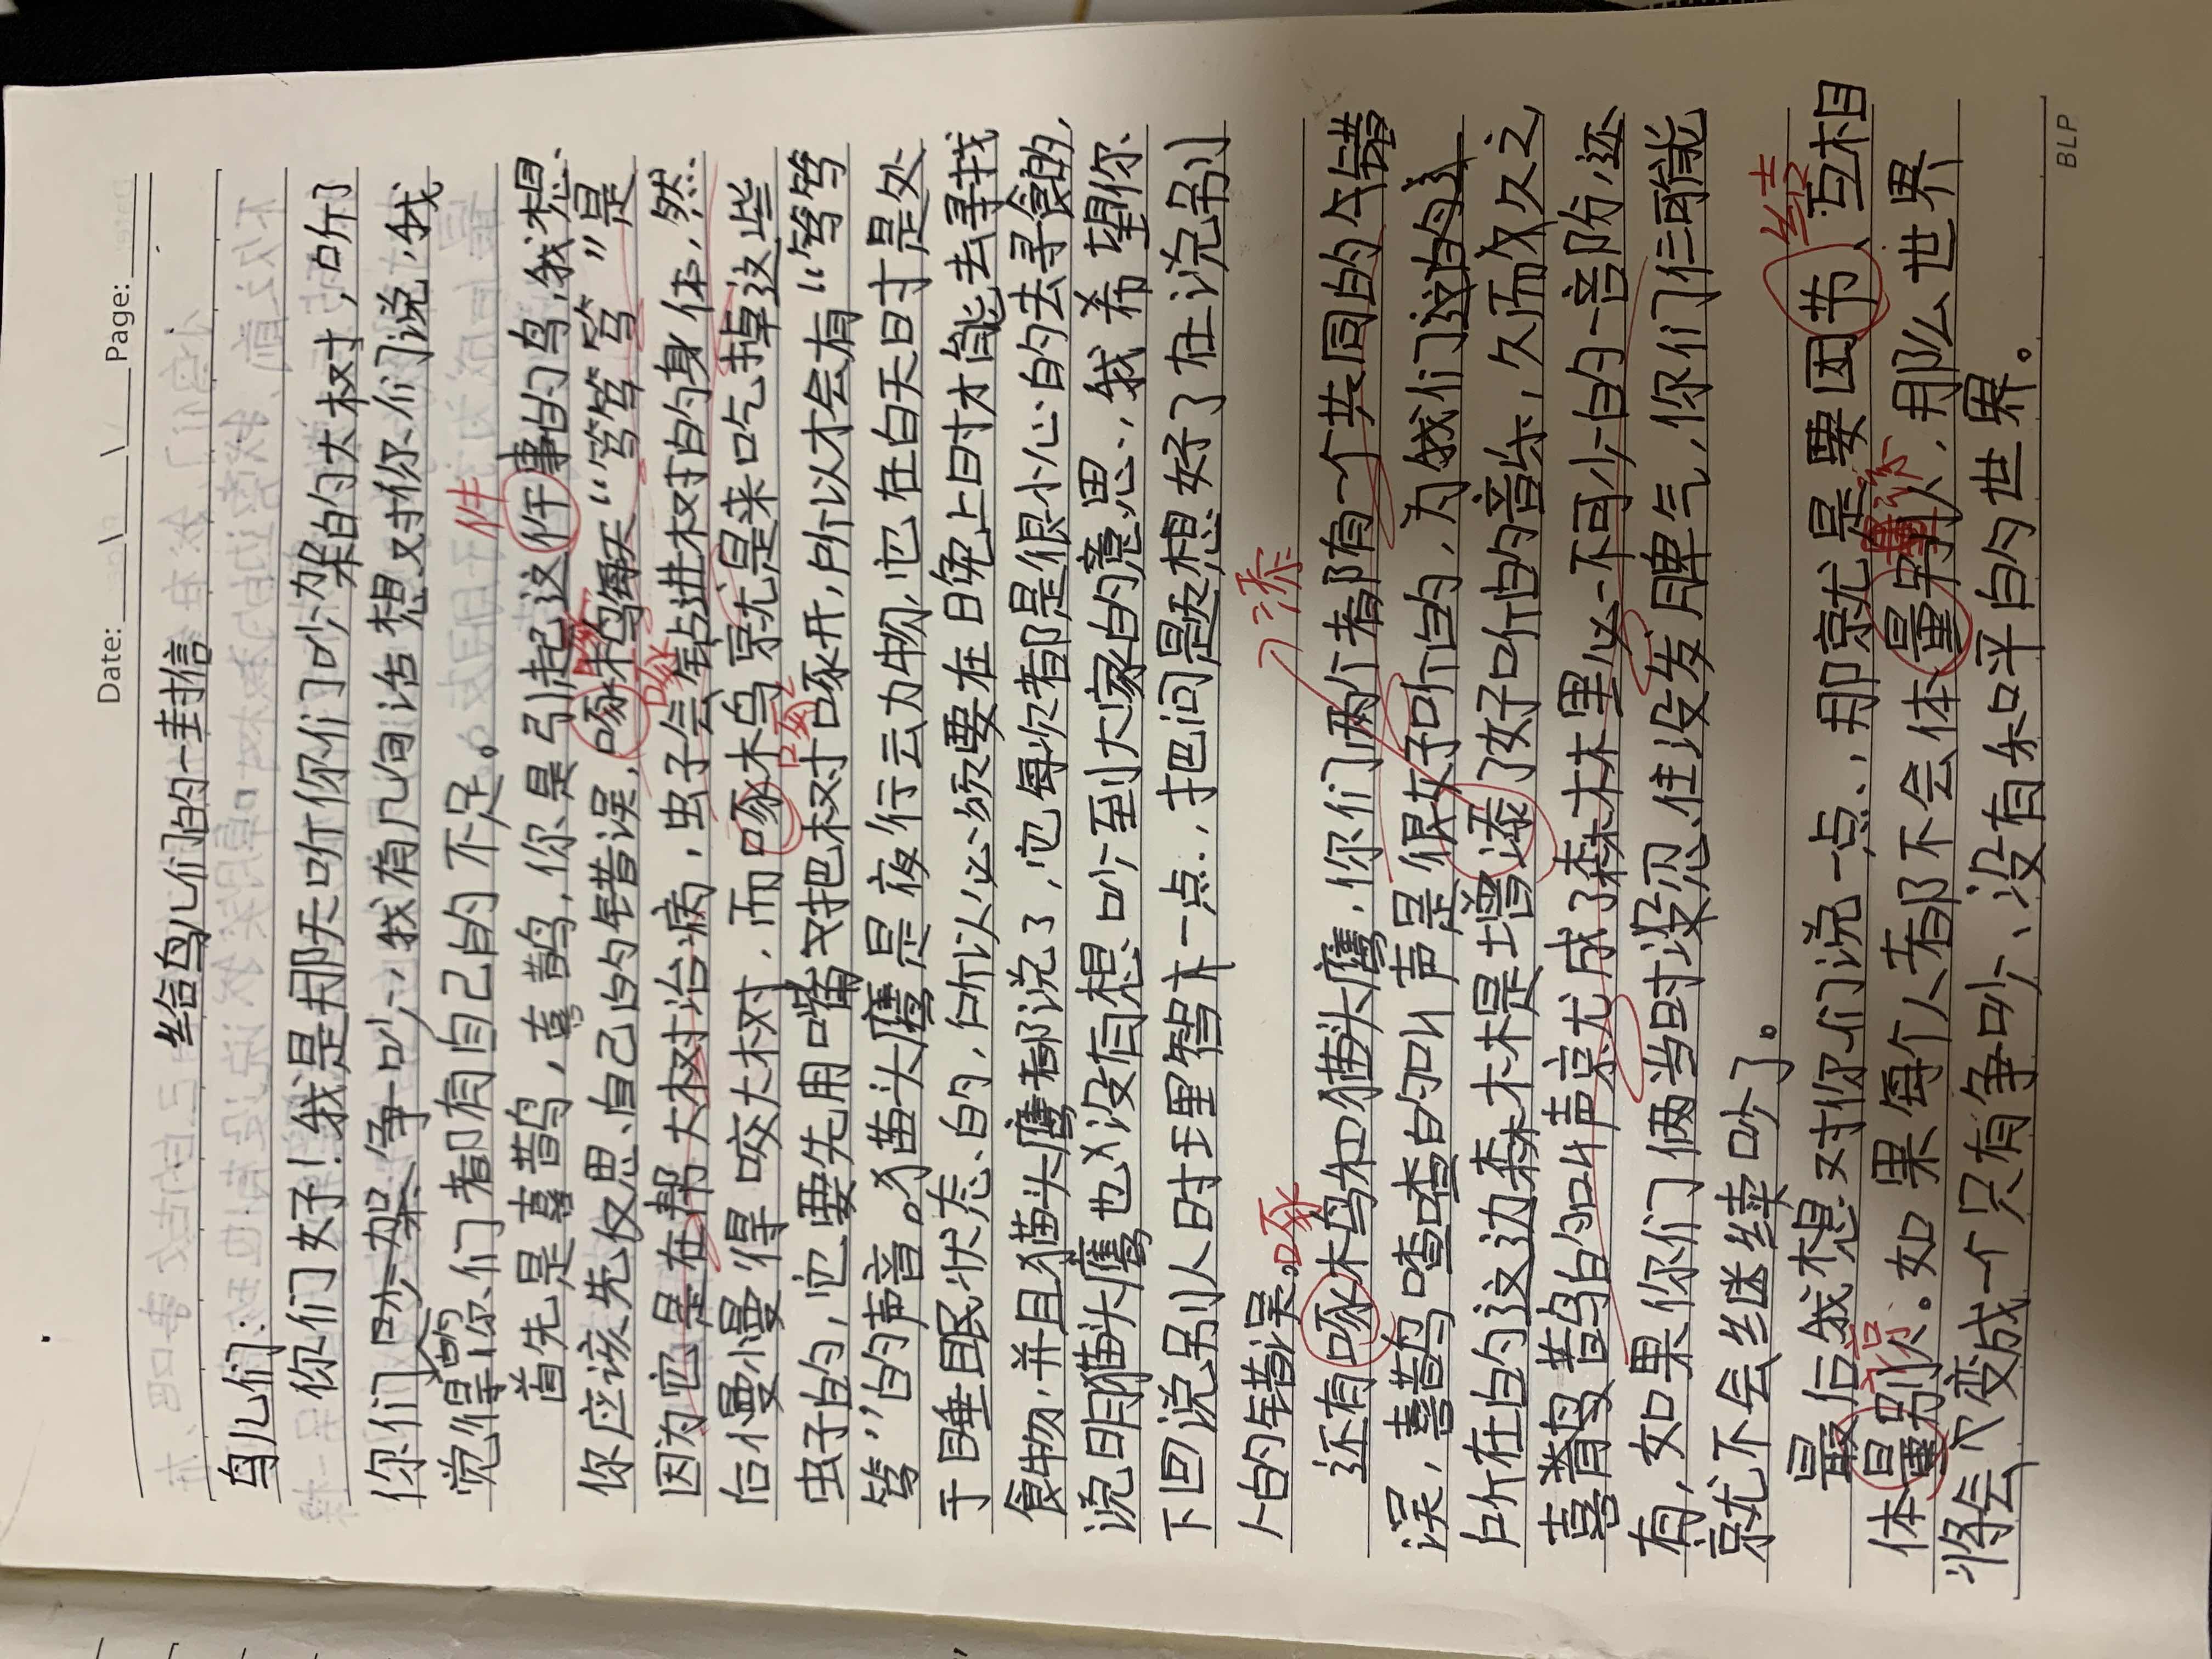 Date: \ \ Page:
给鸟儿们的一封信
鸟儿们:
你们好!我是那天听你们吵架的大树,听了
你们吵架、争吵,我有几句话想对你们说,我
觉得你们都有自己的不足。
件
首先是喜鹊,喜鹊,你是引起这件事的鸟,我想,
你应该先反思自己的错误,啄木鸟每天“笃笃笃”是
啄
因为它是在帮大树治病,虫子会钻进树的身体,然
后慢慢得咬大树,而啄木鸟就是来吃掉这些
啄
虫子的,它要先用嘴对把树啄开,所以才会有“笃笃
笃”的声音。猫头鹰是夜行动物,它在白天时是处
于睡眠状态的,所以必须要在晚上时才能去寻找
食物,并且猫头鹰都说了,它每次都是很小心的去寻食的,
说明猫头鹰也没有想吵到大家的意思,我希望你
下回说别人时理智一点,把问题想好了在说别
人的错误。
啄 添
还有啄木鸟和猫头鹰,你们两个都有一个共同的错
误,喜鹊喳喳的叫声是很好听的,为我们
所在的这边森林是增添了好听的音乐,久而久之
喜鹊的叫声就成了森林里必不可少的一部份,还
有,如果你们俩当时没忍住没发脾气,你们仨可能
就不会继续吵了。
结
最后我想对你们说一点,那就是要团节、互相
体量别人。如果每个人都不会体量别人,那么世界
将会变成一个只有争吵、没有和平的世界。
BLP